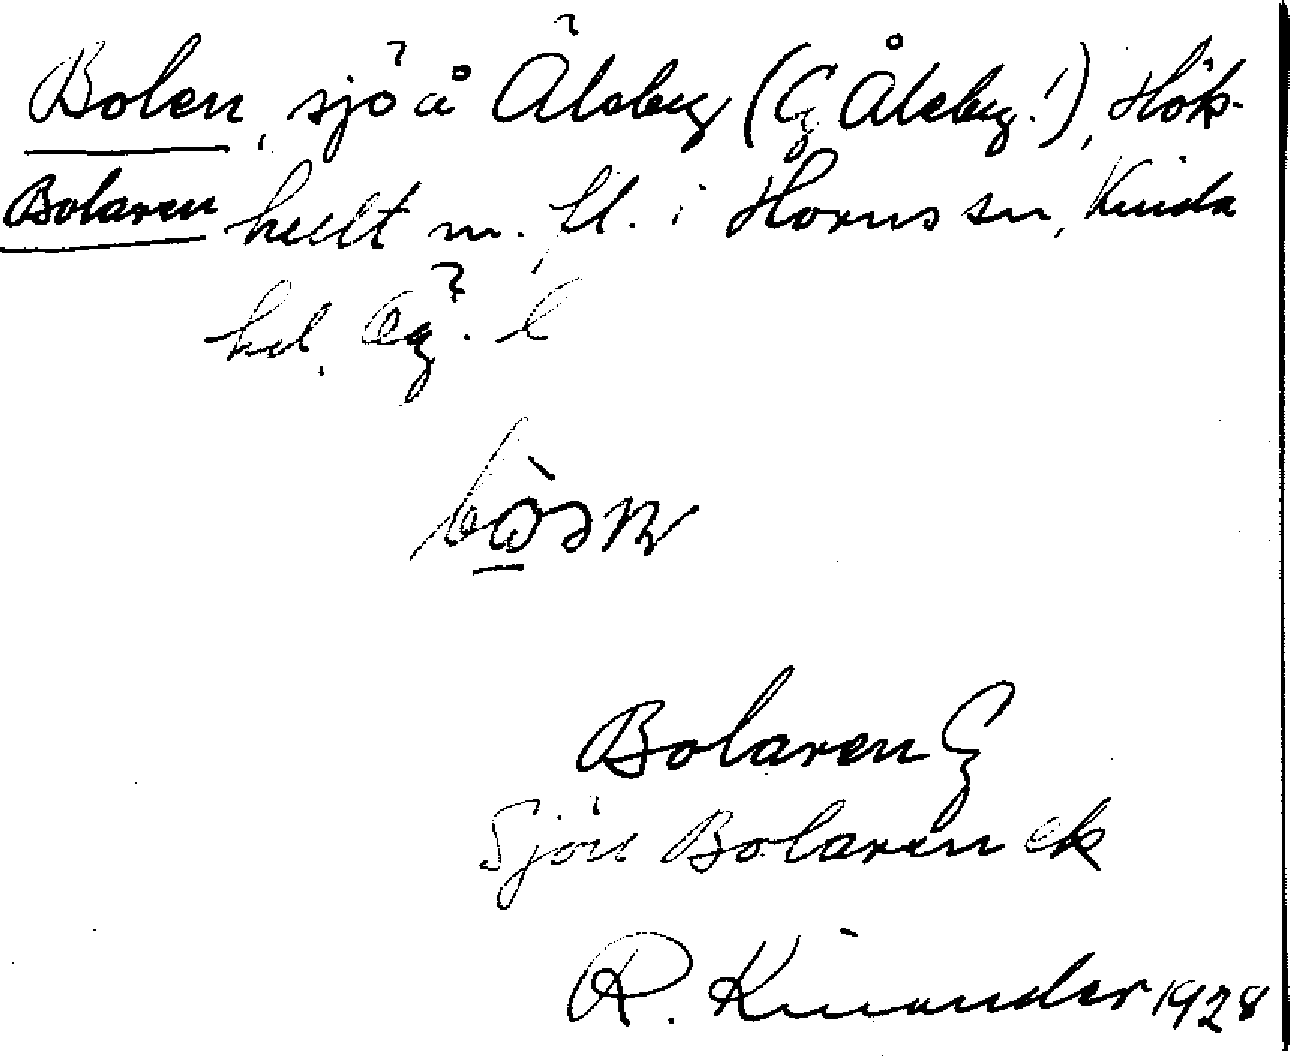 Bolen, sjö å Ålsbg (Cg Ålsbg!), Hök-
Bolaren hult m. fl. i Horns sn, Kinda
hd, Ög. l
Bolaren G
Sjön Bolaren ek
R. Kinander 1928